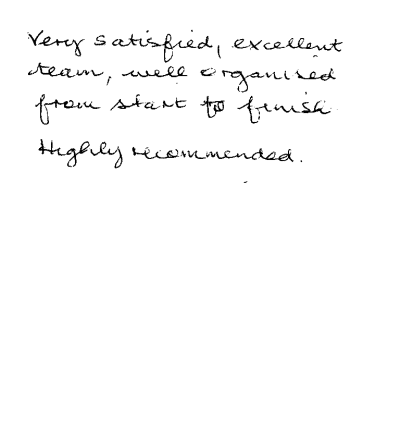 Very satisfied, excellent
team, well organised
from start to finish
Highly recommended.